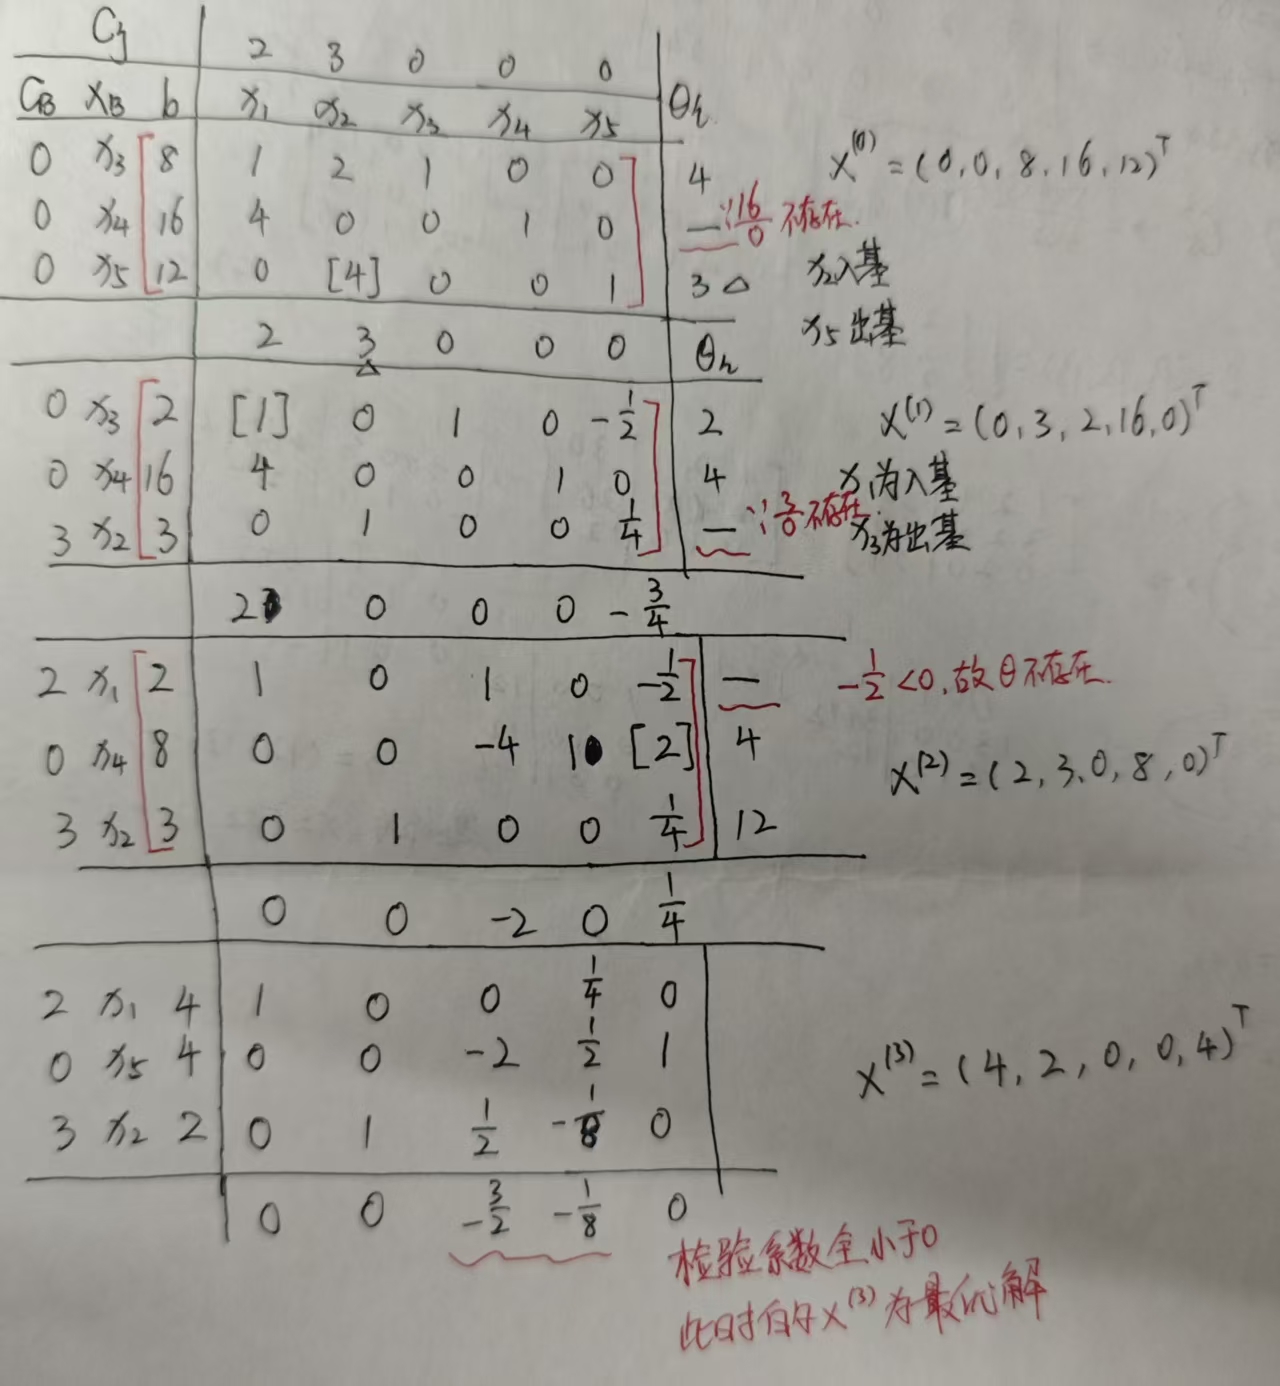 Cj 2 3 0 0 0
CB XB b x₁ x₂ x₃ x₄ x₅ θₖ
0 x₃ 8 1 2 1 0 0 4 X⁽⁰⁾=(0,0,8,16,12)ᵀ
0 x₄ 16 4 0 0 1 0 — ∵16/0 不存在.
0 x₅ 12 0 [4] 0 0 1 3 △ x₂入基
x₅出基
2 3 0 0 0 θₖ
△
0 x₃ 2 [1] 0 1 0 -1/2 2 X⁽¹⁾=(0,3,2,16,0)ᵀ
0 x₄ 16 4 0 0 1 0 4 x₁为入基
3 x₂ 3 0 1 0 0 1/4 — ∵3/0不存在 x₃为出基
2 0 0 0 -3/4
2 x₁ 2 1 0 1 0 -1/2 — -1/2<0,故θ不存在.
0 x₄ 8 0 0 -4 1 [2] 4 X⁽²⁾=(2,3,0,8,0)ᵀ
3 x₂ 3 0 1 0 0 1/4 12
0 0 -2 0 1/4
2 x₁ 4 1 0 0 1/4 0
0 x₅ 4 0 0 -2 1/2 1 X⁽³⁾=(4,2,0,0,4)ᵀ
3 x₂ 2 0 1 1/2 -1/8 0
0 0 -3/2 -1/8 0
检验系数全小于0
此时的X⁽³⁾为最优解